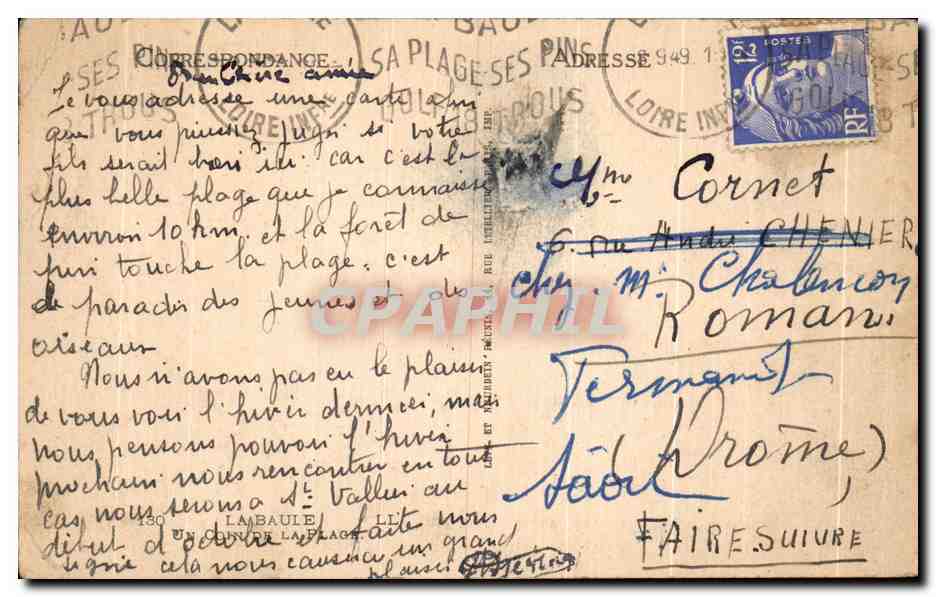 LA BAULE
SES PINS
SA PLAGE-SES PINS
GOLF 18 TROUS
LOIRE INFRE
9.49
LOIRE INFRE
12F
POSTES
RF
CORRESPONDANCE
ADRESSE
Bien Chère amie
Je vous adresse une carte afin
que vous puissiez juger si votre
fils serait bien ici car c'est la
plus belle plage que je connaisse
environ 10 km. et la forêt de
pins touche la plage. c'est
le paradis des jeunes et des
oiseaux
Nous n'avons pas eu le plaisir
de vous voir l'hiver dernier, mais
nous pensons pouvoir l'hiver
prochain nous rencontrer en tout
cas nous serons a St Vallier au
début d'octobre faite nous
signe cela nous causera un grand
plaisir
130 LA BAULE LL
UN COIN DE LA PLAGE
LEVY ET NEURDEIN RÉUNIS, 44, RUE LETELLIER, PARIS, IMP.
Mme Cornet
6 rue André CHENIER
chez M. Chalancon
Romans
Saôu
(Drôme)
FAIRE SUIVRE
CPAPHIL